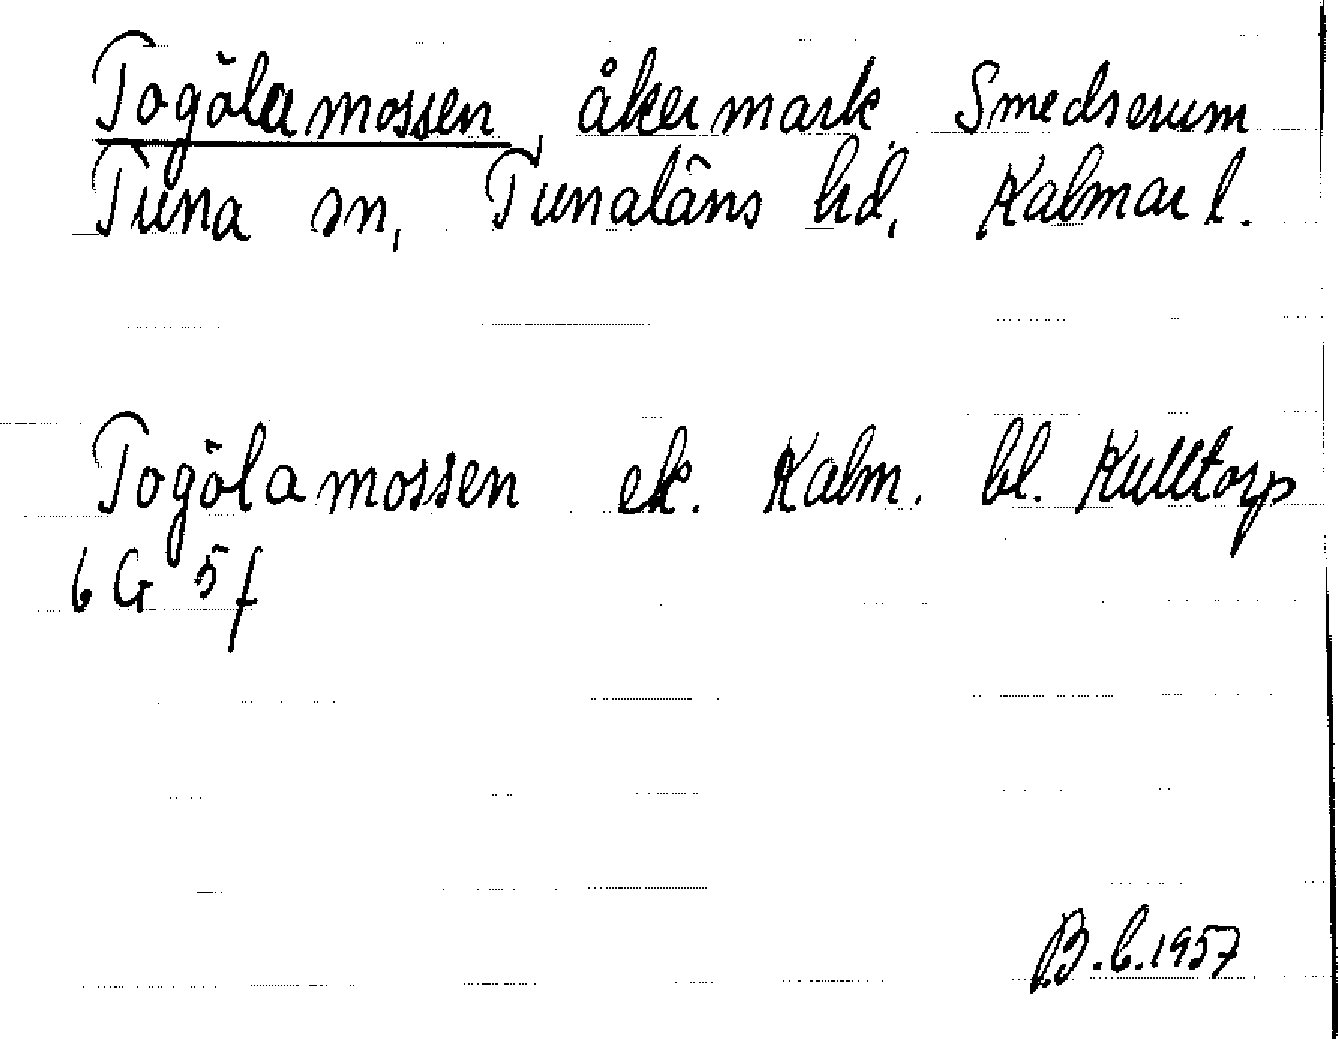 Togölamossen, åkermark, Smedserum
Tuna sn, Tunaläns hd, Kalmar l.
Togölamossen ek. Kalm. bl. Kulltorp
6 G 5 f
B.b.1957